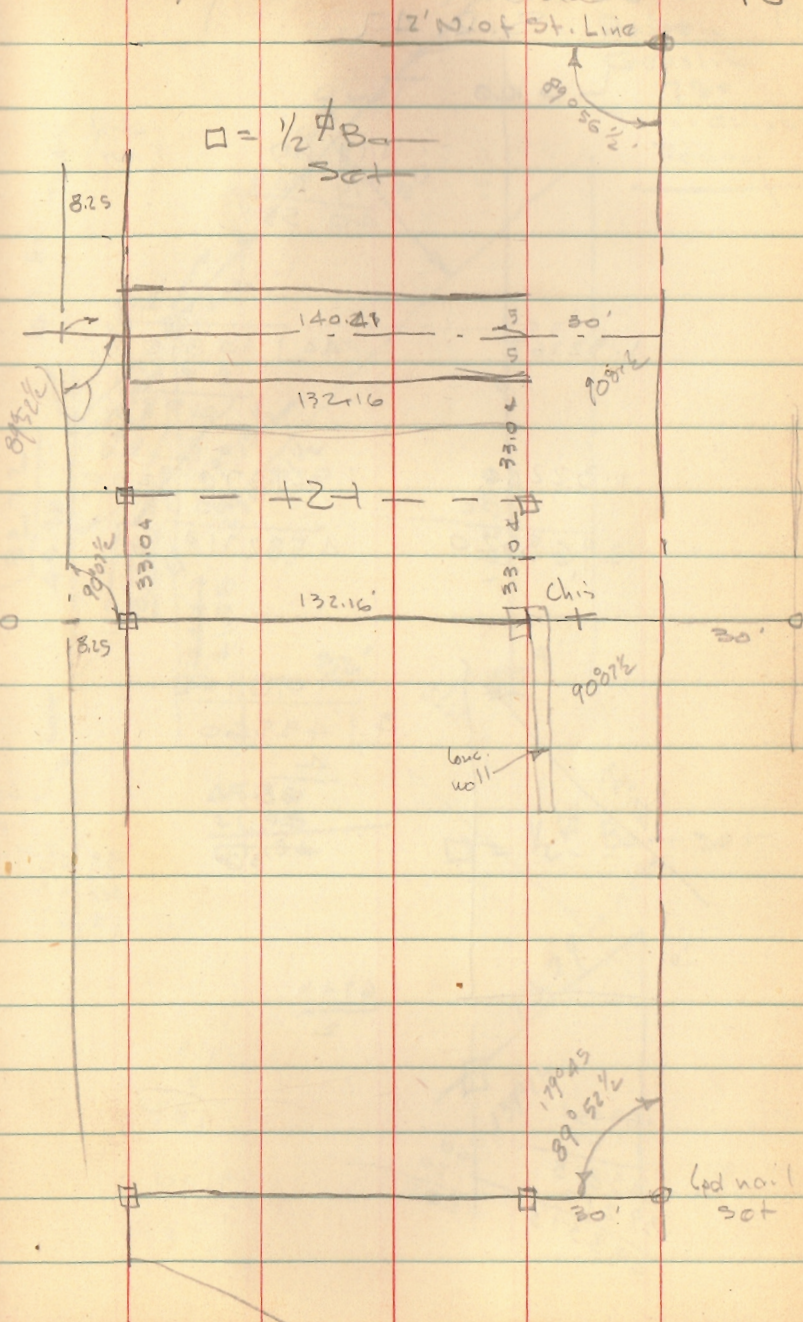 2' N. of St. Line
89° 56 ½'
□ = ½ ∅ Bar
Set
8.25
140.41
5
30'
5
89° 52½
132.16
90° 07½
33.04
121
33.04
33.04
90° 07½
Chis
132.16'
30'
8.25
90° 07½
Conc.
wall
179° 45
89° 52½
60d nail
30'
Set